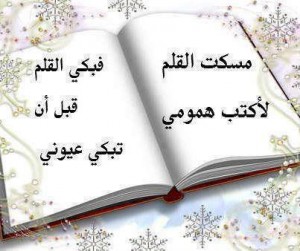 مسكت القلم
لأكتب همومي
فبكي القلم
قبل أن
تبكي عيوني